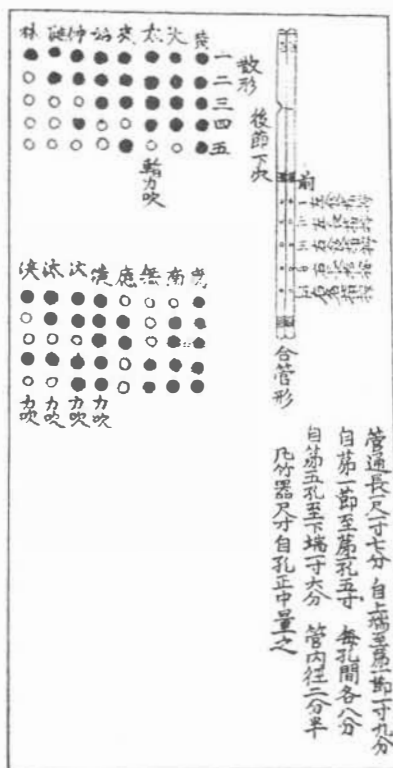 前
合管形
後節下穴
散形
一
二
三
四
五
黃 大 太 夾 姑 仲 蕤 林
力吹
夷 南 無 應 潢 汏 汰 浹
力吹 力吹 力吹 力吹
管通長一尺寸七分 自上端至第一節一寸九分
自第一節至第一孔五寸 每孔間各八分
自第五孔至下端一寸六分 管内徑二分半
凡竹器尺寸自孔正中量之